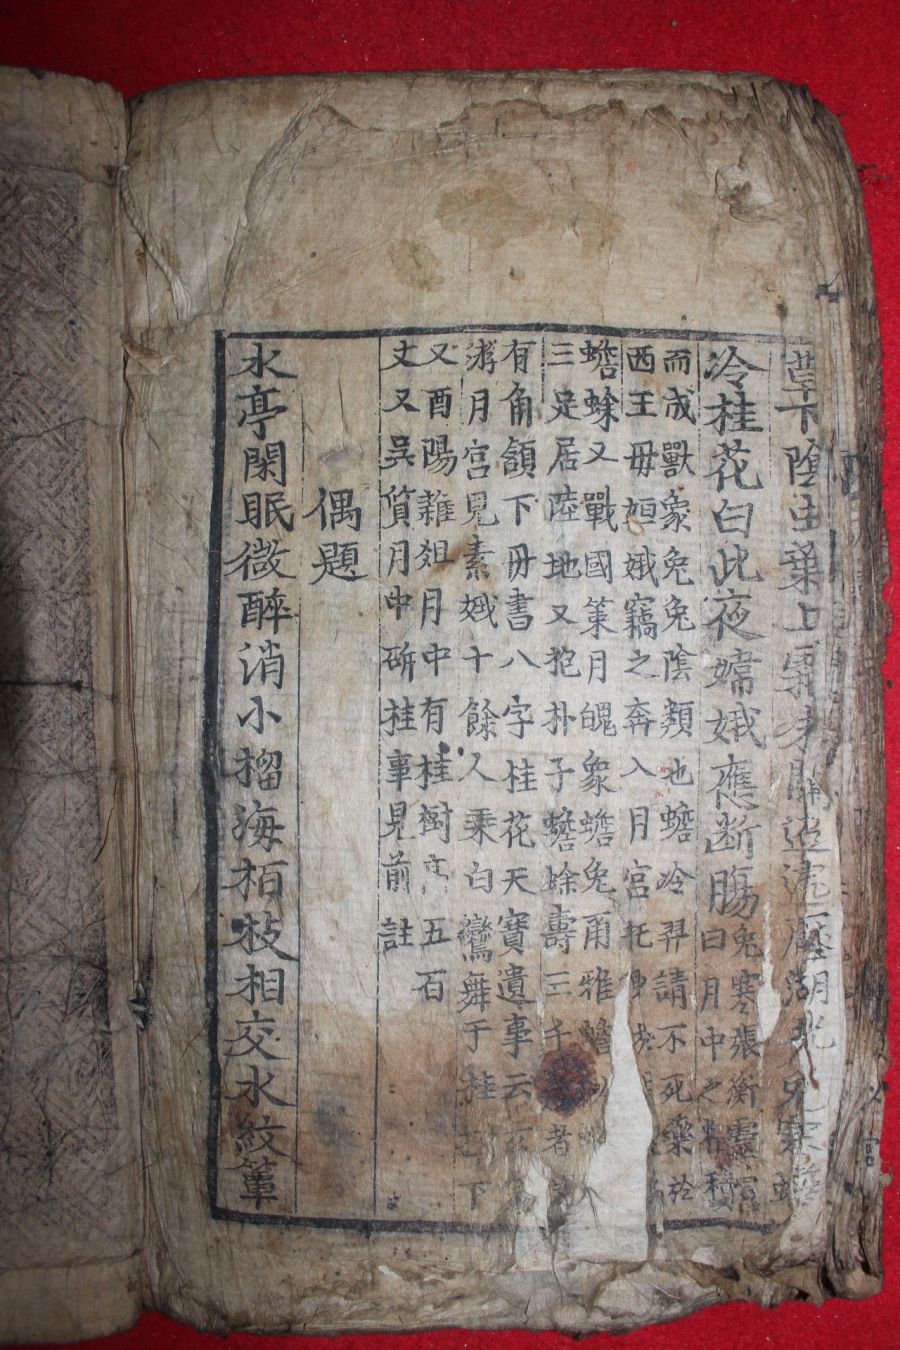 草下陰虫葉上霜朱闌迢遞壓湖光兔寒蟾
冷桂花白此夜嫦娥應断膓兔寒張衡靈憲
曰月中之精積
而成獸象兔兔陰類也蟾冷羿請不死藥於
西王母姮娥竊之奔入月宮托身
蟾蜍又戰國策月魄象蟾兔甬雅蟾
三足居陸地又抱朴子蟾蜍壽三千者
有角頷下丹書八字桂花天寶遺事云
游月宮見素娥十餘人乘白鸞舞于桂樹下
又酉陽雜俎月中有桂樹高五石
丈又吳質月中斫桂事見前註
偶題
水亭閑眠微醉消小榴海栢枝相交水紋簟